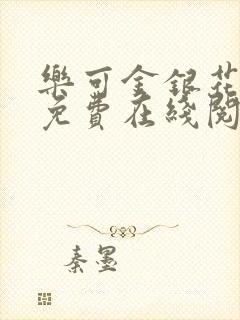 樂可金銀花
免費在綫閱
秦墨